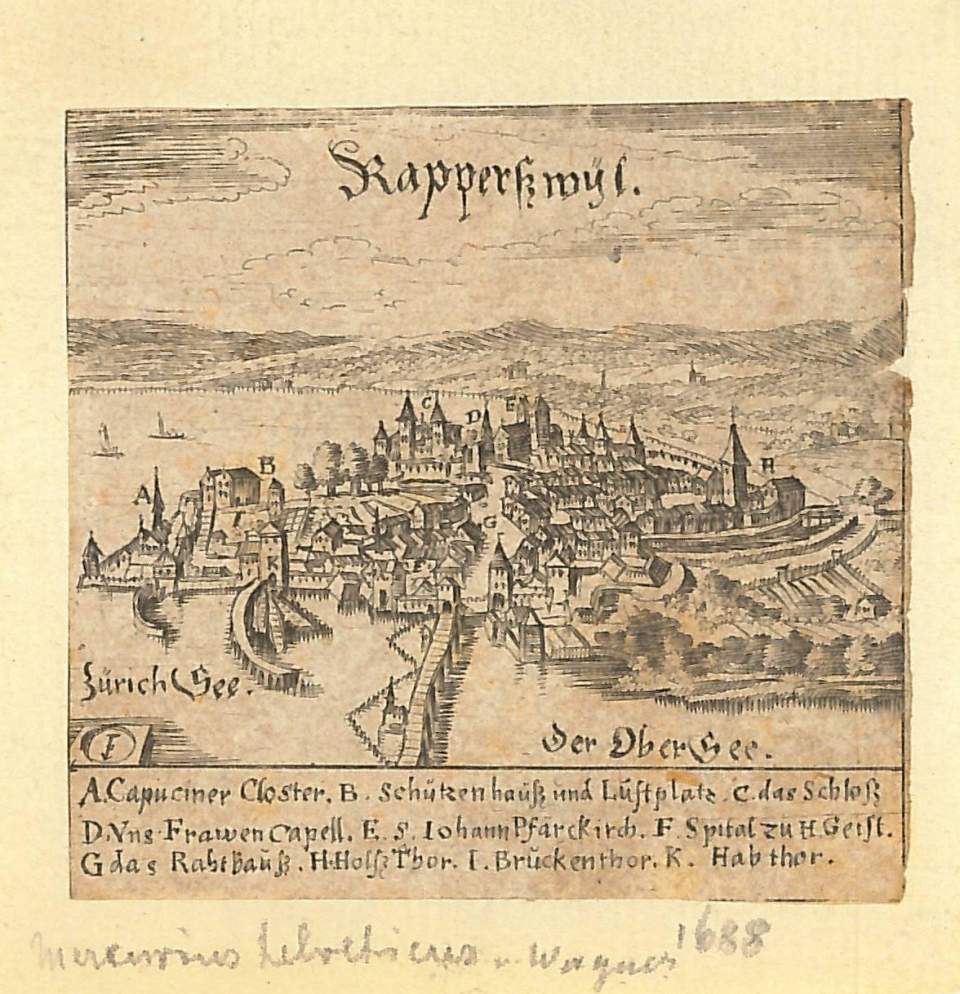 Rapperßwÿl.
C
D
E
A
B
H
G
F
K
I
Zürich See.
Der Ober See.
I
A. Capuciner Closter. B. Schützenhauß und Lustplatz. C. das Schloß
D. Vns. Frawen Capell. E. S. Iohann Pfarrkirch. F. Spital zu H Geist.
G das Rahthauß. H. Holtz Thor. I. Bruckenthor. K. Habthor.
Mercurius helveticus v. Wagner 1688